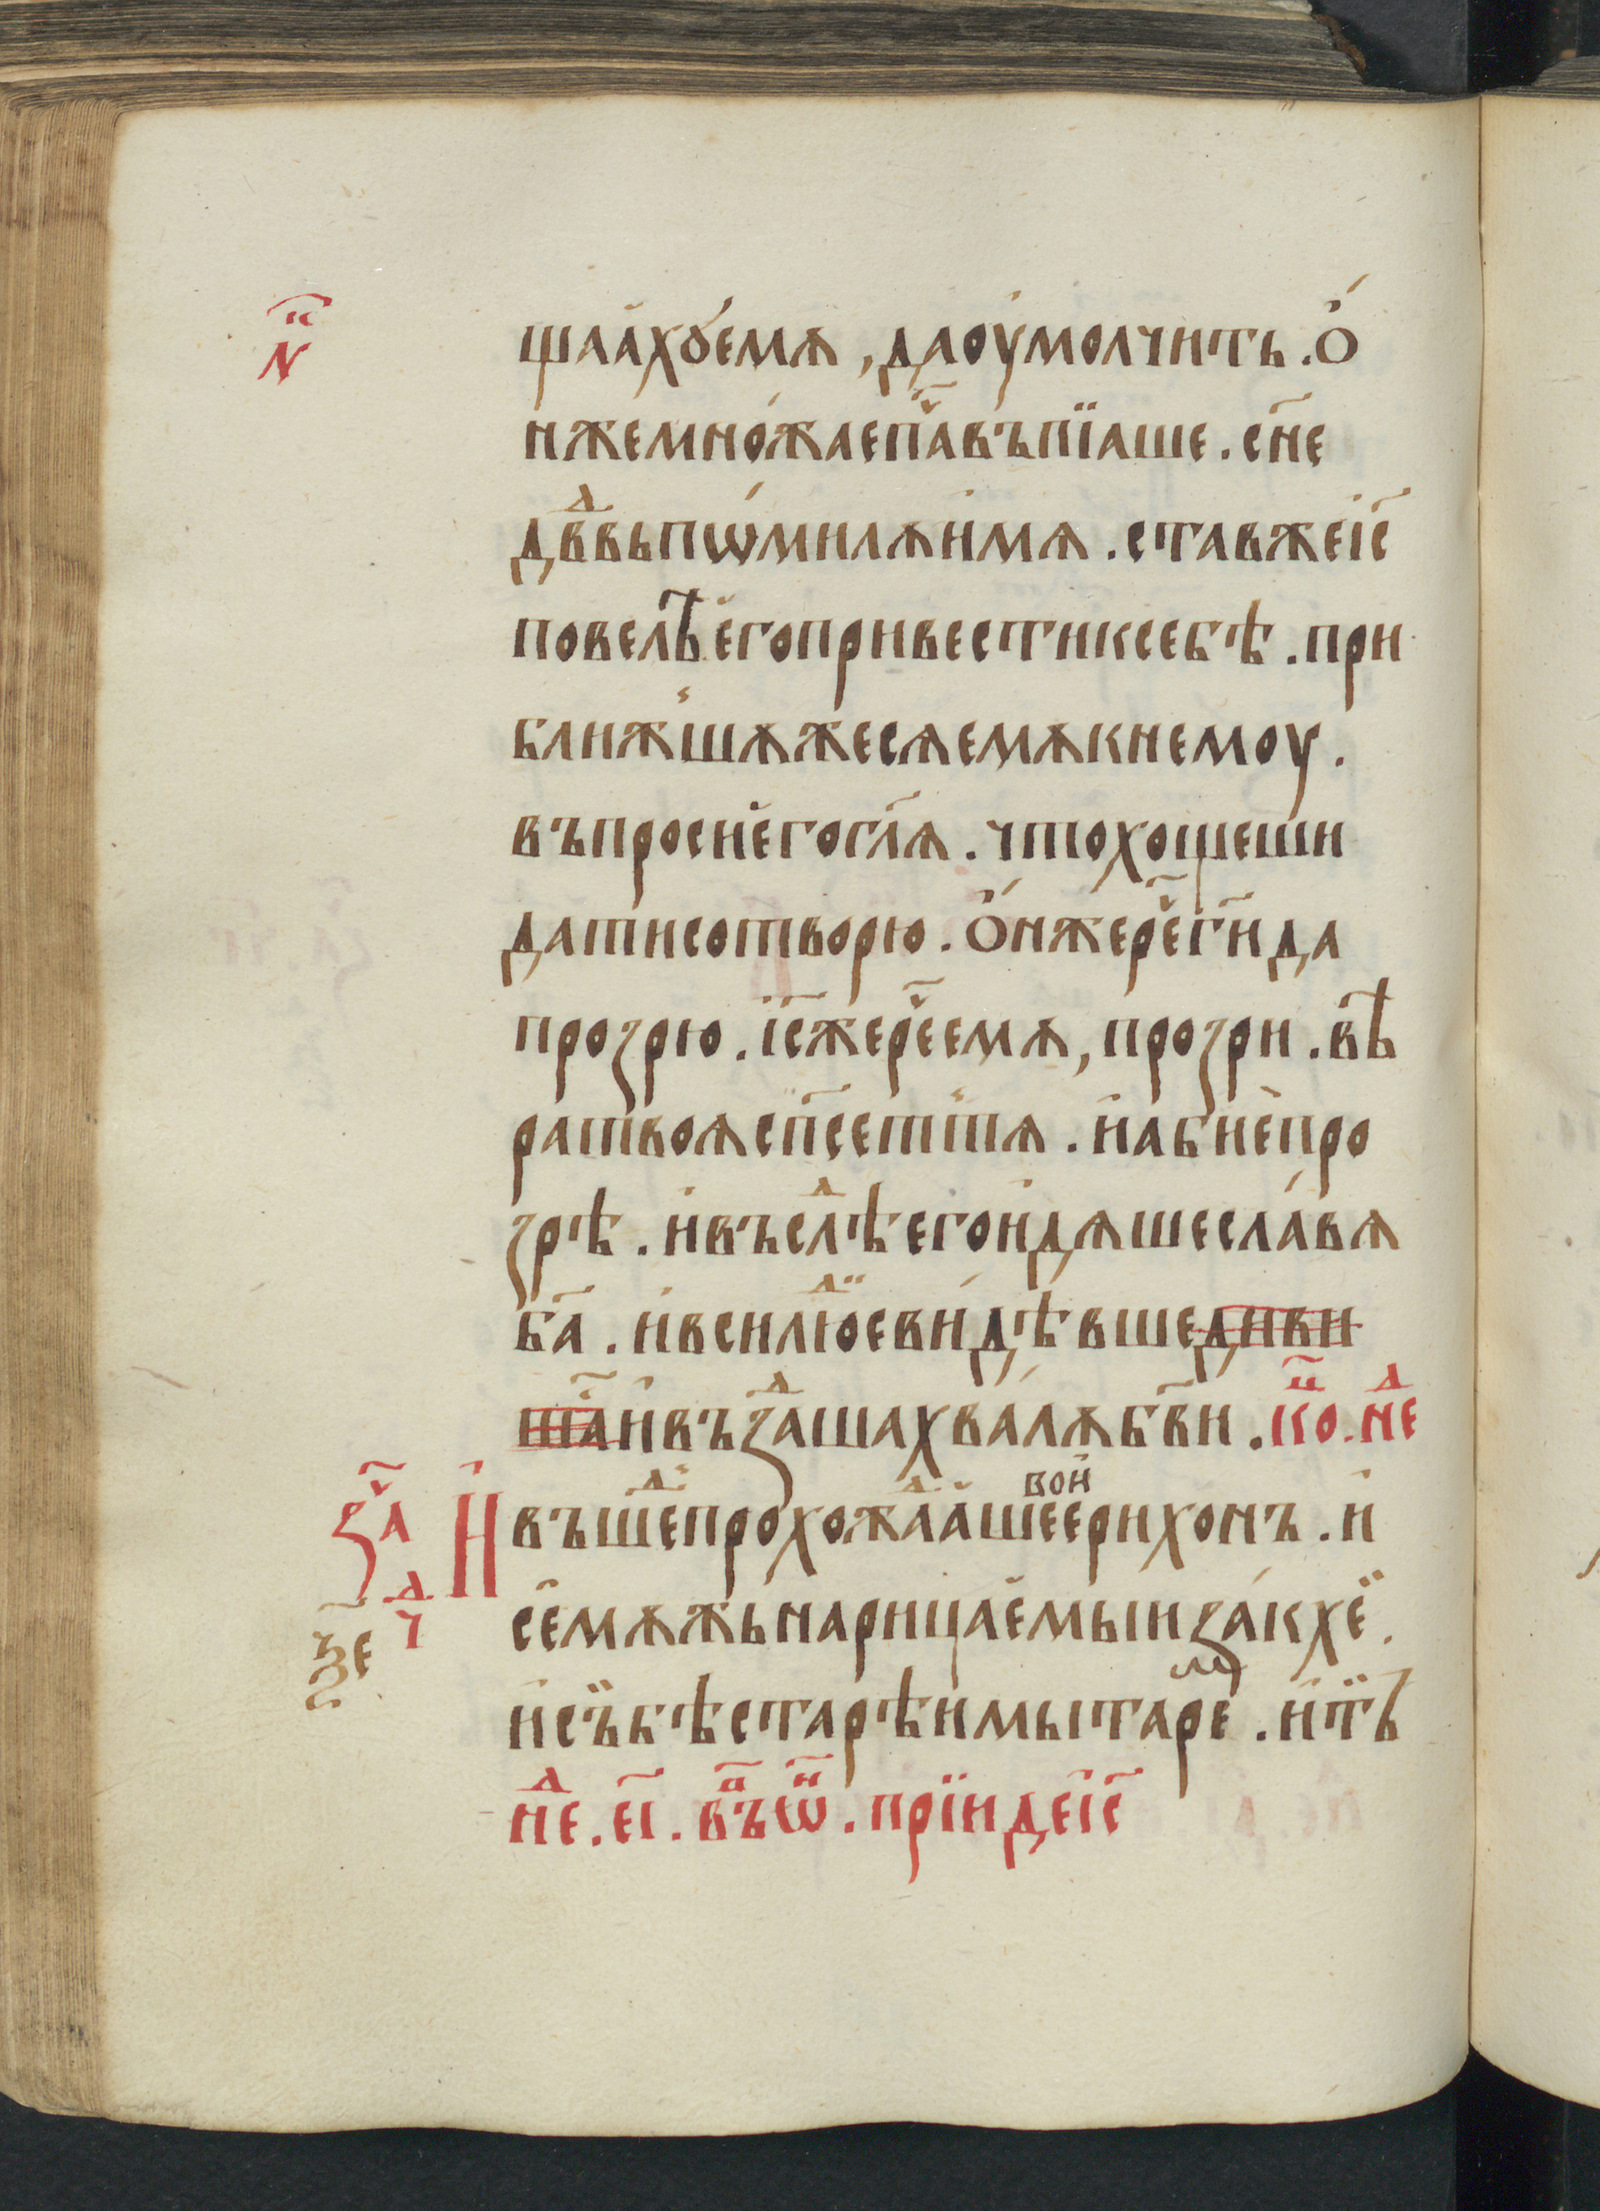 щаахꙋемѫ, даоумолчить. О
нжемножаепⷱ҇авъпїаше. сн҃е
дв҃дⷣвьпѡмилѫимѧ. ставжеіс҃
повелѣегопривестиксебѣ. при
ближⸯшѫжесѧемѫкнемоу.
въпросиегогл҃ѧ. чтохощеши
датисотворю. Онжерⷱ҇егн҃ида
прозрю. іс҃жерⷱ҇еемѫ, прозри. вѣ
ратвоѧсп҃сеттѧ. иабиепро
зрѣ. ивъслⷣѣегоидѧшеславѧ
ба҃. ивсилюⷣевидѣвшедиви
шⷺаивъзⷣашахвалѫбв҃и. коⷩ҇. неⷣ
въшеⷣпрохожаⷣашеерихонъ. и
вои
семѫжьнарицаемыизакхеи.
исъибѣстарѣимытаре. итъи
неⷣ. еі҃. въⷩ҇ѿ. прїидеіс҃
Nⷩ҇
заⷱ҇
И
чⷣ
ѯе